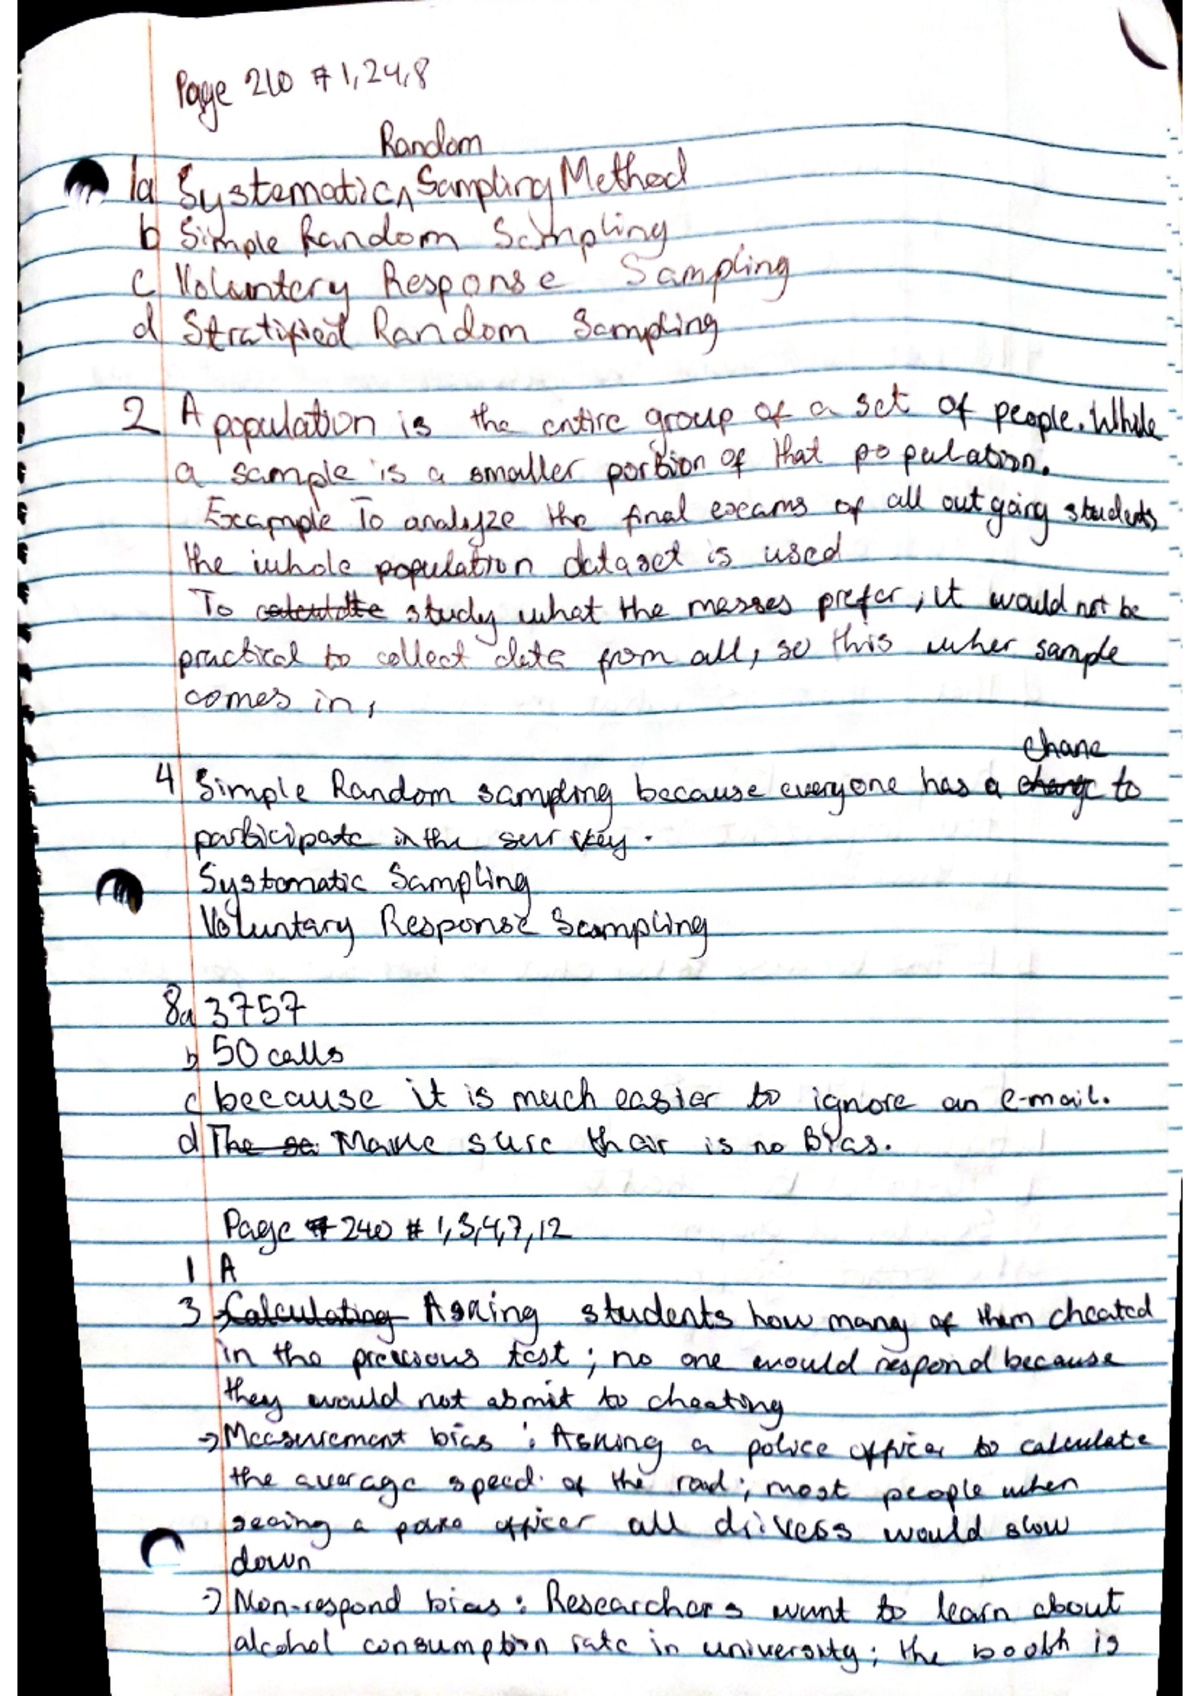 Page 210 # 1,2,4,8
Random
1a Systematic ^ Sampling Method
b Simple Random Sampling
c Voluntery Response Sampling
d Stratified Random Sampling
2 A population is the entire group of a set of people. While
a sample is a smaller portion of that population.
Example To analyze the final exams of all out going students
the whole population dataset is used
To calculate study what the masses prefer, it would not be
practical to collect data from all, so this wher sample
comes in,
chane
4 Simple Random sampling because everyone has a to
participate in the survey.
Systomatic Sampling
Voluntary Response Sampling
8a 3757
b 50 calls
c because it is much easier to ignore an e-mail.
d The sa Make sure thair is no Bias.
Page # 240 # 1,3,4,7,12
1 A
3 Calculating Asking students how many of them cheated
in the previous test; no one would respond because
they would not abmit to cheating
→ Measurement bias : Asking a police officer to calculate
the average speed of the road; most people when
seeing a officer all drivess would slow
down
→ Non-respond bias : Researchers want to learn about
alcohol consumption rate in university; the booth is